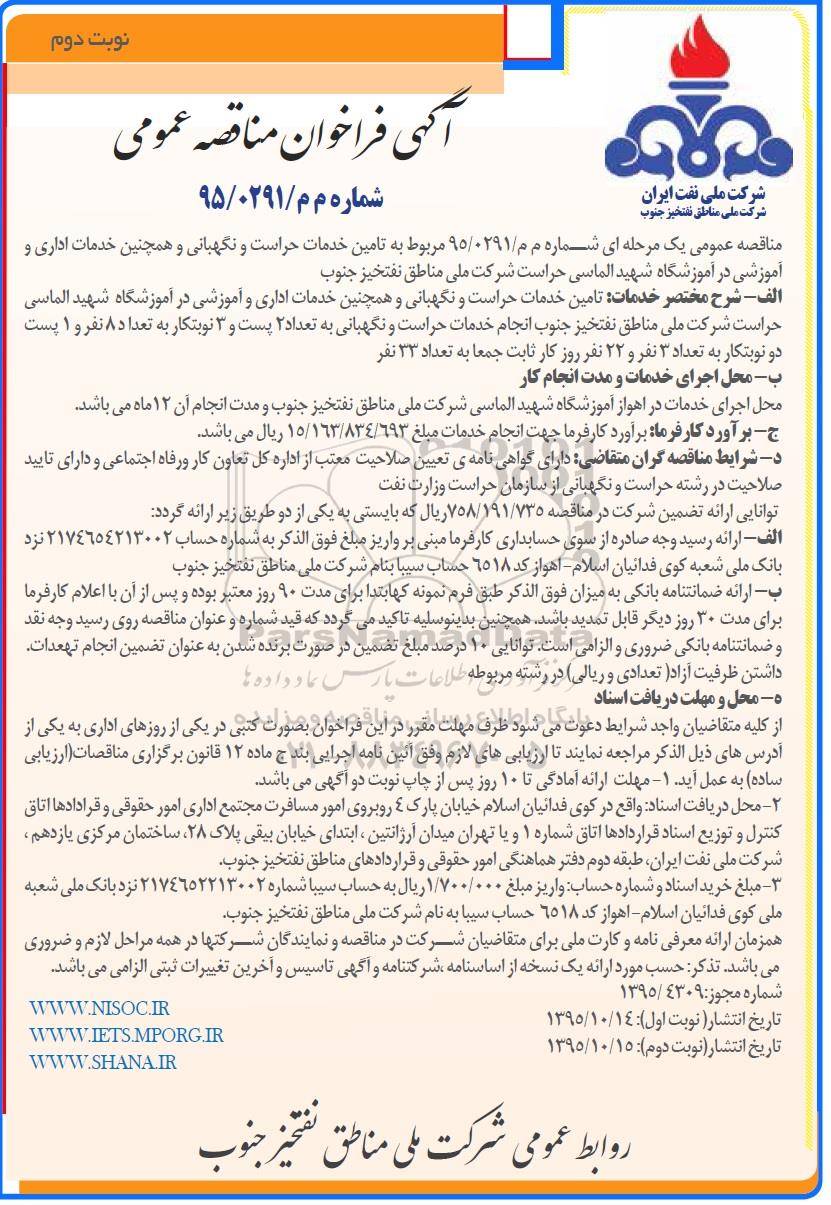 نوبت دوم
آگهی فراخوان مناقصه عمومی
شماره م م/۹۵/۰۲۹۱
شرکت ملی نفت ایران
شرکت ملی مناطق نفتخیز جنوب
مناقصه عمومی یک مرحله ای شـــماره م م/۹۵/۰۲۹۱ مربوط به تامین خدمات حراست و نگهبانی و همچنین خدمات اداری و
آموزشی در آموزشگاه شهید الماسی حراست شرکت ملی مناطق نفتخیز جنوب
الف– شرح مختصر خدمات: تامین خدمات حراست و نگهبانی و همچنین خدمات اداری و آموزشی در آموزشگاه شهید الماسی
حراست شرکت ملی مناطق نفتخیز جنوب انجام خدمات حراست و نگهبانی به تعداد۲ پست و ۳ نوبتکار به تعدا د ۸ نفر و ۱ پست
دو نوبتکار به تعداد ۳ نفر و ۲۲ نفر روز کار ثابت جمعا به تعداد ۳۳ نفر
ب– محل اجرای خدمات و مدت انجام کار
محل اجرای خدمات در اهواز آموزشگاه شهید الماسی شرکت ملی مناطق نفتخیز جنوب و مدت انجام آن ۱۲ماه می باشد.
ج– برآورد کارفرما: برآورد کارفرما جهت انجام خدمات مبلغ ۱۵/۱۶۳/۸۳۴/۶۹۳ ریال می باشد.
د– شرایط مناقصه گران متقاضی: دارای گواهی نامه ی تعیین صلاحیت معتب از اداره کل تعاون کار ورفاه اجتماعی و دارای تایید
صلاحیت در رشته حراست و نگهبانی از سازمان حراست وزارت نفت
توانایی ارائه تضمین شرکت در مناقصه ۷۵۸/۱۹۱/۷۳۵ریال که بایستی به یکی از دو طریق زیر ارائه گردد:
الف– ارائه رسید وجه صادره از سوی حسابداری کارفرما مبنی بر واریز مبلغ فوق الذکر به شماره حساب ۲۱۷۴۶۵۴۲۱۳۰۰۲ نزد
بانک ملی شعبه کوی فدائیان اسلام- اهواز کد ۶۵۱۸ حساب سیبا بنام شرکت ملی مناطق نفتخیز جنوب
ب– ارائه ضمانتنامه بانکی به میزان فوق الذکر طبق فرم نمونه کهابتدا برای مدت ۹۰ روز معتبر بوده و پس از آن با اعلام کارفرما
برای مدت ۳۰ روز دیگر قابل تمدید باشد. همچنین بدینوسلیه تاکید می گردد که قید شماره و عنوان مناقصه روی رسید وجه نقد
و ضمانتنامه بانکی ضروری و الزامی است. توانایی ۱۰ درصد مبلغ تضمین در صورت برنده شدن به عنوان تضمین انجام تهعدات.
داشتن ظرفیت آزاد( تعدادی و ریالی) در رشته مربوطه
ه– محل و مهلت دریافت اسناد
از کلیه متقاضیان واجد شرایط دعوت می شود ظرف مهلت مقرر در این فراخوان بصورت کتبی در یکی از روزهای اداری به یکی از
آدرس های ذیل الذکر مراجعه نمایند تا ارزیابی های لازم وفق آئین نامه اجرایی بند ج ماده ۱۲ قانون برگزاری مناقصات(ارزیابی
ساده) به عمل آید. ۱- مهلت ارائه آمادگی تا ۱۰ روز پس از چاپ نوبت دو آگهی می باشد.
۲- محل دریافت اسناد: واقع در کوی فدائیان اسلام خیابان پارک ٤ روبروی امور مسافرت مجتمع اداری امور حقوقی و قرادادها اتاق
کنترل و توزیع اسناد قراردادها اتاق شماره ۱ و یا تهران میدان آرژانتین ، ابتدای خیابان بیقی پلاک ۲۸، ساختمان مرکزی یازدهم ،
شرکت ملی نفت ایران، طبقه دوم دفتر هماهنگی امور حقوقی و قراردادهای مناطق نفتخیز جنوب.
۳- مبلغ خرید اسناد و شماره حساب: واریز مبلغ ۱/۷۰۰/۰۰۰ریال به حساب سیبا شماره ۲۱۷٤٦٥۲۲۱۳۰۰۲ نزد بانک ملی شعبه
ملی کوی فدائیان اسلام- اهواز کد ٦٥۱۸ حساب سیبا به نام شرکت ملی مناطق نفتخیز جنوب.
همزمان ارائه معرفی نامه و کارت ملی برای متقاضیان شـــرکت در مناقصه و نمایندگان شـــرکتها در همه مراحل لازم و ضروری
می باشد. تذکر: حسب مورد ارائه یک نسخه از اساسنامه ،شرکتنامه و آگهی تاسیس و آخرین تغییرات ثبتی الزامی می باشد.
شماره مجوز:۱۳۹۵/ ۴۳۰۹
تاریخ انتشار( نوبت اول): ۱۳۹۵/۱۰/۱۴
تاریخ انتشار(نوبت دوم): ۱۳۹۵/۱۰/۱۵
WWW.NISOC.IR
WWW.IETS.MPORG.IR
WWW.SHANA.IR
روابط عمومی شرکت ملی مناطق نفتخیز جنوب
ParsNamadData
مرکز فرآوری اطلاعات پارس نماد داده ها
پایگاه اطلاع رسانی مناقصه و مزایده